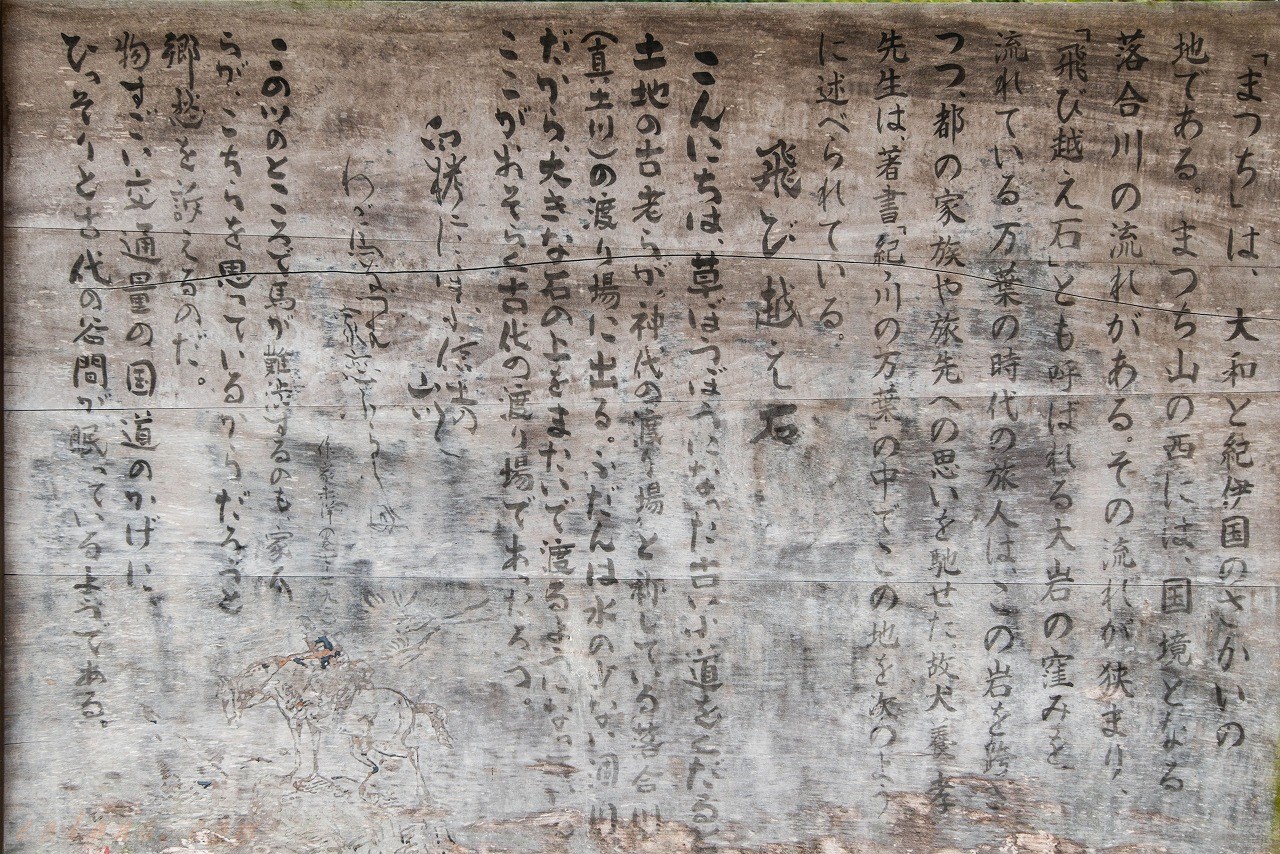 「まつち」は、大和と紀伊国のさかいの
地である。まつち山の西には、国境となる
落合川の流れがある。その流れが狭まり、
「飛び越え石」とも呼ばれる大岩の窪みを
流れている。万葉の時代の旅人は、この岩を跨ぎ
つつ、都の家族や旅先への思いを馳せた。故犬養孝
先生は、著書「紀ノ川の万葉」の中でこの地を次のよう
に述べられている。
飛び越え石
こんにちは、草ぼうぼうになった古い小道をくだると
土地の古老らが“神代の渡り場”と称している落合川
(真土川)の渡り場に出る。ふだんは水の少ない涸川
だから、大きな石の上をまたいで渡るようになっている。
ここが、おそらく古代の渡り場であったろう。
白栲ににほふ信土の
山川に
わが馬なづむ
家恋ふらしも
作者未詳
この川のところで馬が難渋するのも、家人
らが、こちらを思っているからだろうと
郷愁を訴えるのだ。
物すごい交通量の国道のかげに
ひっそりと古代の谷間が眠っているようである。